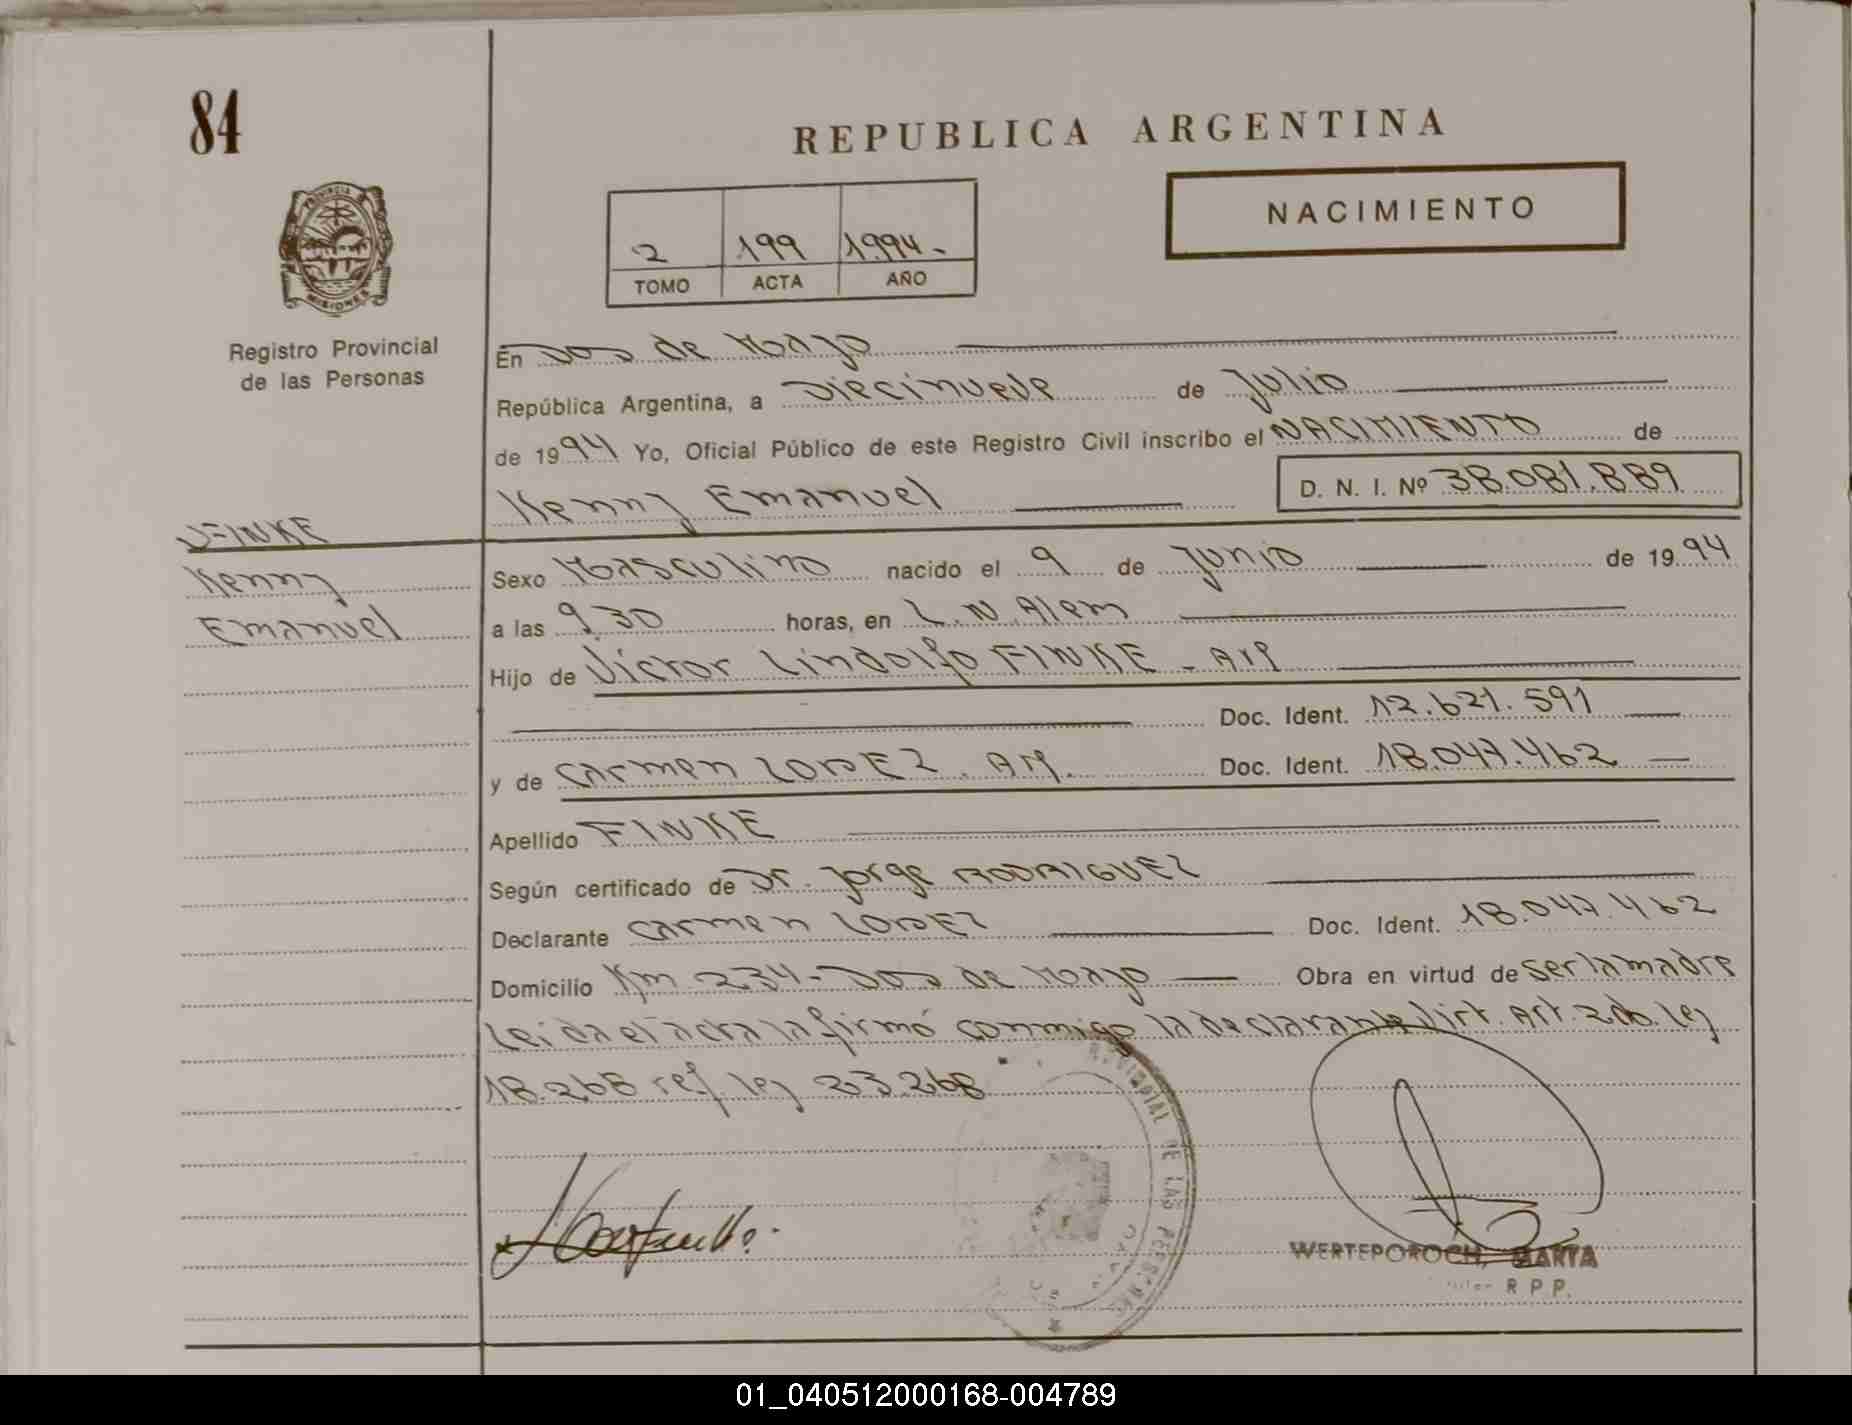 84
REPUBLICA ARGENTINA
NACIMIENTO
2 199 1.994.-
TOMO ACTA AÑO
PROVINCIA
MISIONES
Registro Provincial
de las Personas
En Dos de Mayo
República Argentina, a Diecinueve de Julio
de 1994 Yo, Oficial Público de este Registro Civil inscribo el NACIMIENTO de
Kenny Emanuel D. N. I. Nº 38.081.889
FINKE
Kenny
Emanuel
Sexo Masculino nacido el 9 de Junio de 1994
a las 9.30 horas, en L. N. Alem
Hijo de Victor Lindolfo FINKE - Arg
Doc. Ident. 12.621.591
y de Carmen LOPEZ. Arg. Doc. Ident. 18.047.462
Apellido FINKE
Según certificado de Dr. Jorge RODRIGUEZ
Declarante Carmen LOPEZ Doc. Ident. 18.047.462
Domicilio Km 234- Dos de Mayo Obra en virtud de ser la madre
Leida el acta la firmó conmigo la declarante Art. 2do. Ley
18.268 ref. ley 23.268
DE LAS PERSONAS
WERTEPOROCH, MARTA
R P P.
01_040512000168-004789